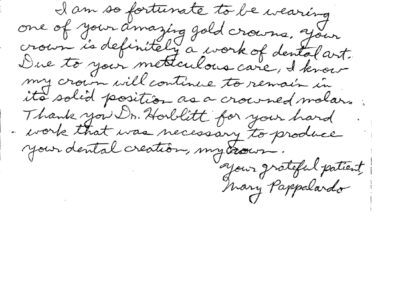 I am so fortunate to be wearing
one of your amazing gold crowns. Your
crown is definitely a work of dental art.
Due to your meticulous care, I know
my crown will continue to remain in
its solid position as a crowned molar.
Thank you Dr. Horblitt for your hard
work that was necessary to produce
your dental creation, my crown.
Your grateful patient,
Mary Pappalardo